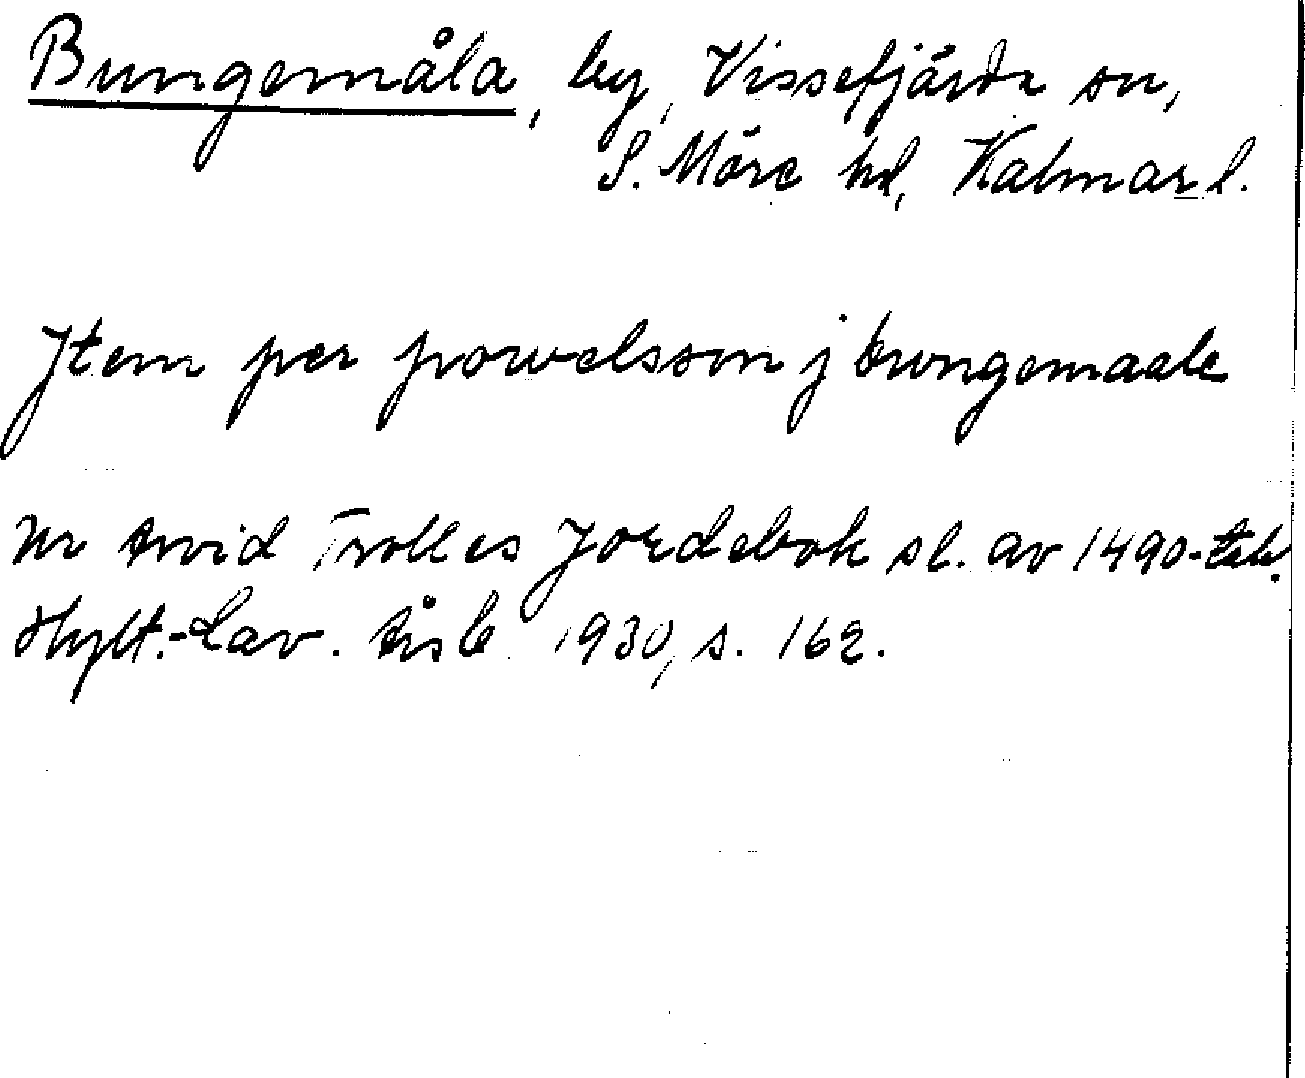 Bungemåla, by, Vissefjärda sn,
S. Möre hd, Kalmar l.
Jtem per powelsson j bungemaale
Ur Arvid Trolles Jordebok sl. av 1490-tal.
Hylt.-Cav. Årsb. 1930, s. 162.